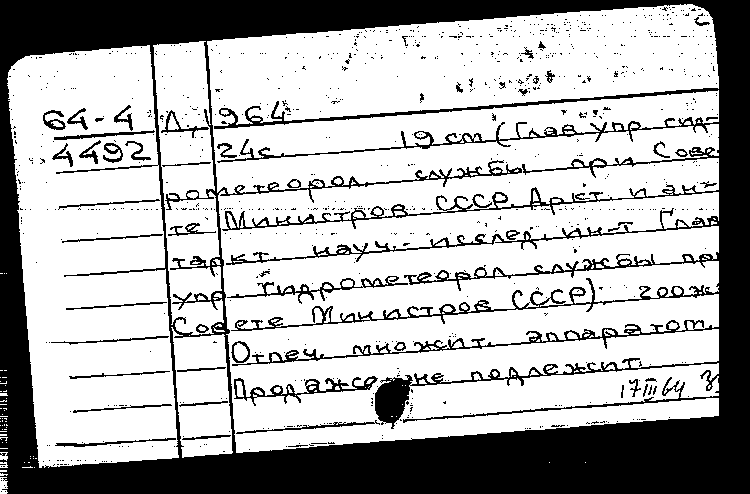 64-4 Л, 1964
4492 24с. 19 cm (Глав упр. гид=
рометеорол. службы при Сове
те Министров СССР. Аркт. и ан=
таркт. науч.- исслед. ин-т Глав
упр. гидрометеорол. службы при
Совете Министров СССР). 200экз
Отпеч. множит. аппаратом.
Продаже не подлежит.
17 III 64